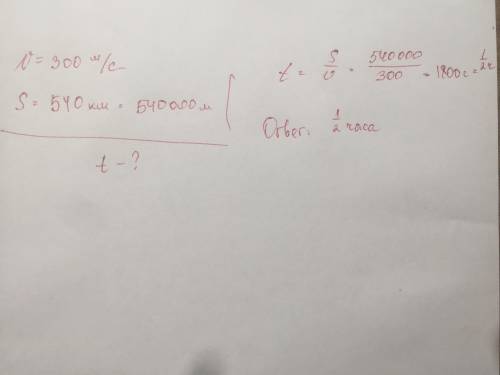 V = 300 м/с
S = 540 км = 540000 м
t - ?
t = S/v = 540000/300 = 1800 с = 1/2 ч
Ответ: 1/2 часа